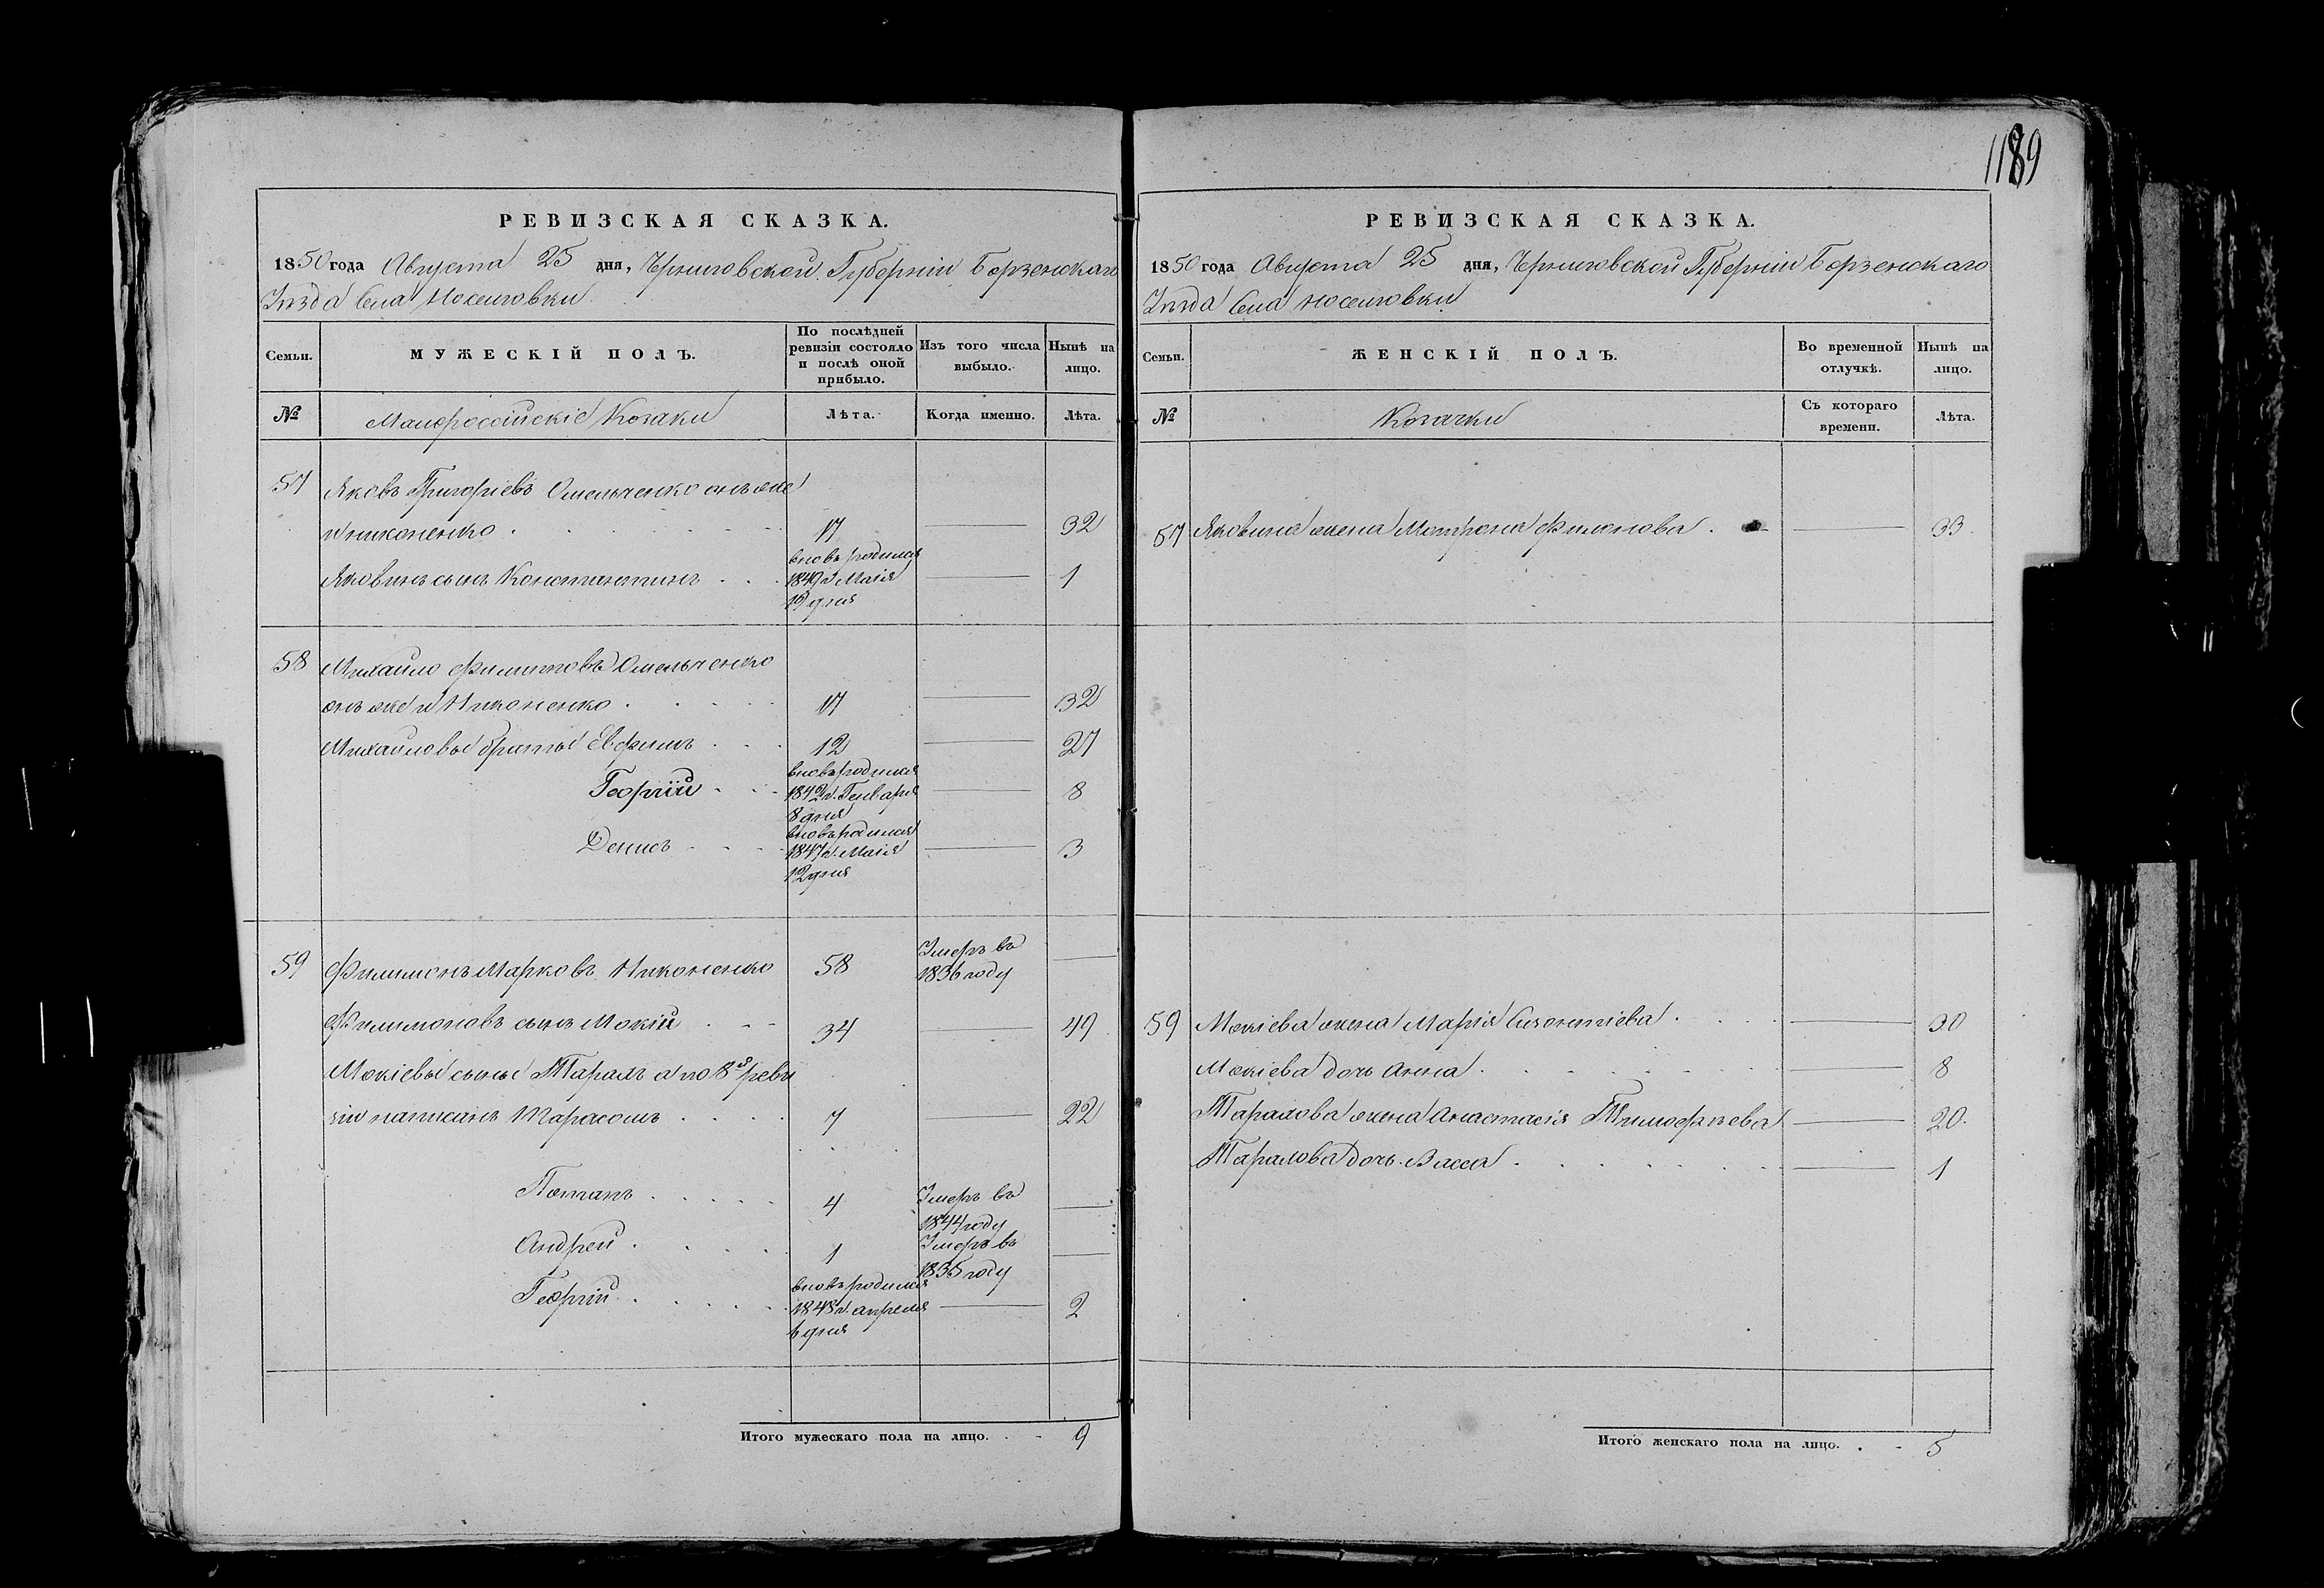 1189
РЕВИЗСКАЯ СКАЗКА.
1850 года Августа 25 дня, Черниговской Губерніи Борзенскаго
Уѣзда Села Носеловки
Семьи.
МУЖЕСКІЙ ПОЛЪ.
По послѣдней ревизіи состояло и послѣ оной прибыло.
Изъ того числа выбыло.
Нынѣ на лицо.
№
Малороссійскіе Козаки
Лѣта.
Когда именно.
Лѣта.
57 Яковъ Григоріевъ Омельченко онъ же
и Никоненко 17 32
Яковинъ сынъ Константинъ вновь родился 1849 г. Маія дня 1
58 Михайло Филиповъ Омельченко
онъ же и Никоненко 17 32
Михайловы братья Евфимъ 12 27
Георгій вновь родился 1842 г. Генваря 8 дня 8
Денисъ вновь родился 1847 г. Маія 12 дня 3
59 Филимонъ Марковъ Никоненко 58 Умеръ въ 1836 году
Филимоновъ сынъ Мокій 34 49
Мокіевы сыны Таралъ а по 8й реви
зіи написанъ Тарасомъ 7 22
Потапъ 4 Умеръ въ 1844 году
Андрей 1 Умеръ въ 1835 году
Георгій вновь родился 1848 г. апреля дня 2
Итого мужескаго пола на лицо. 9
РЕВИЗСКАЯ СКАЗКА.
1850 года Августа 25 дня, Черниговской Губерніи Борзенскаго
Уѣзда Села Носеловки
Семьи.
ЖЕНСКІЙ ПОЛЪ.
Во временной отлучкѣ.
Нынѣ на лицо.
№
Козачки
Съ котораго времени.
Лѣта.
57 Яковина жена Матрона Филонова 33
59 Мокіева жена Марія 30
Мокіева дочь Анна 8
Таралова жена Анастасія Тимофѣева 20
Таралова дочь Васса 1
Итого женскаго пола на лицо. 5